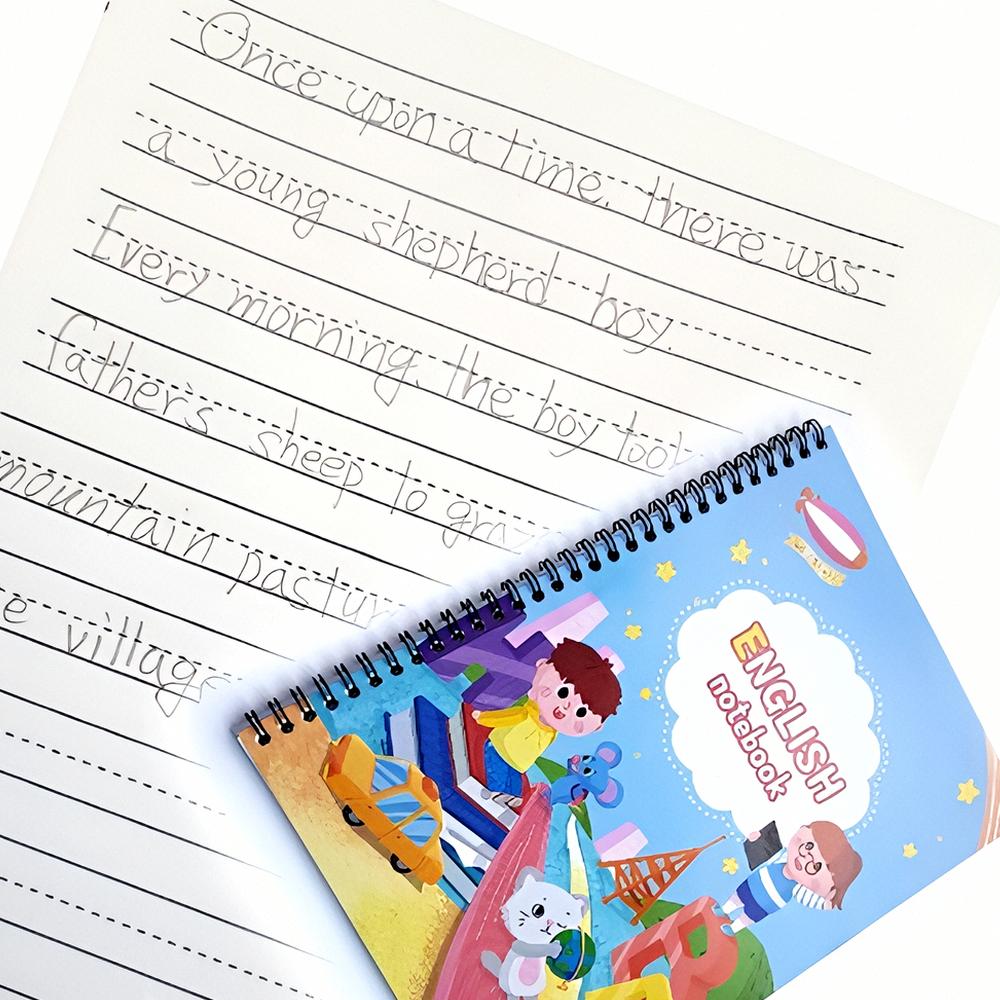 Once upon a time. there was
a young shepherd boy.
Every morning. the boy took
father's sheep to
mountain
village
ENGLISH
notebook